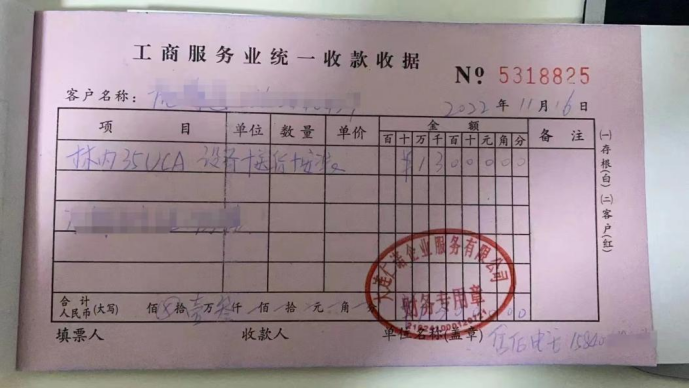 工商服务业统一收款收据
No 5318825
客户名称:
2022年11月16日
项 目 单位 数量 单价 金额 备注
百 十 万 千 百 十 元 角 分
林内35UCA 设备+送货+安装 ¥1300000
合计
人民币(大写) 佰 ⊗ 拾 壹 万 叁 仟 佰 拾 元 角 分
填票人 收款人 单位名称(盖章)
企业服务有限公司
财务专用章
售后电话 15840
(一)存根(白)(二)客户(红)